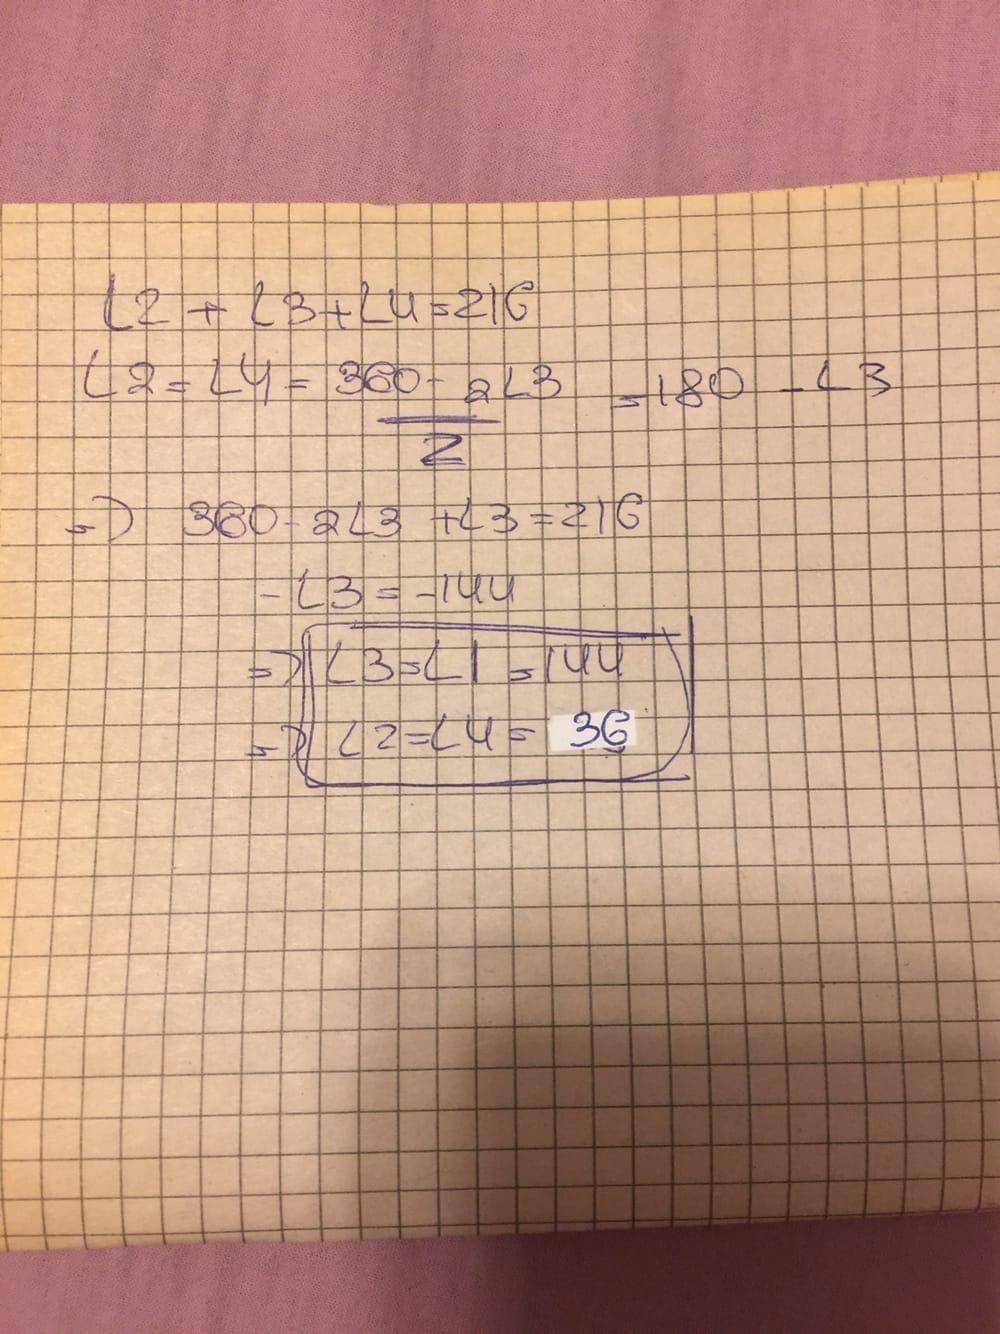 ∠2 + ∠3 + ∠4 = 216
∠2 = ∠4 = 360 - 2∠3 = 180 - ∠3
2
=> 360 - 2∠3 + ∠3 = 216
- ∠3 = -144
=> ∠3 = ∠1 = 144
=> ∠2 = ∠4 = 36